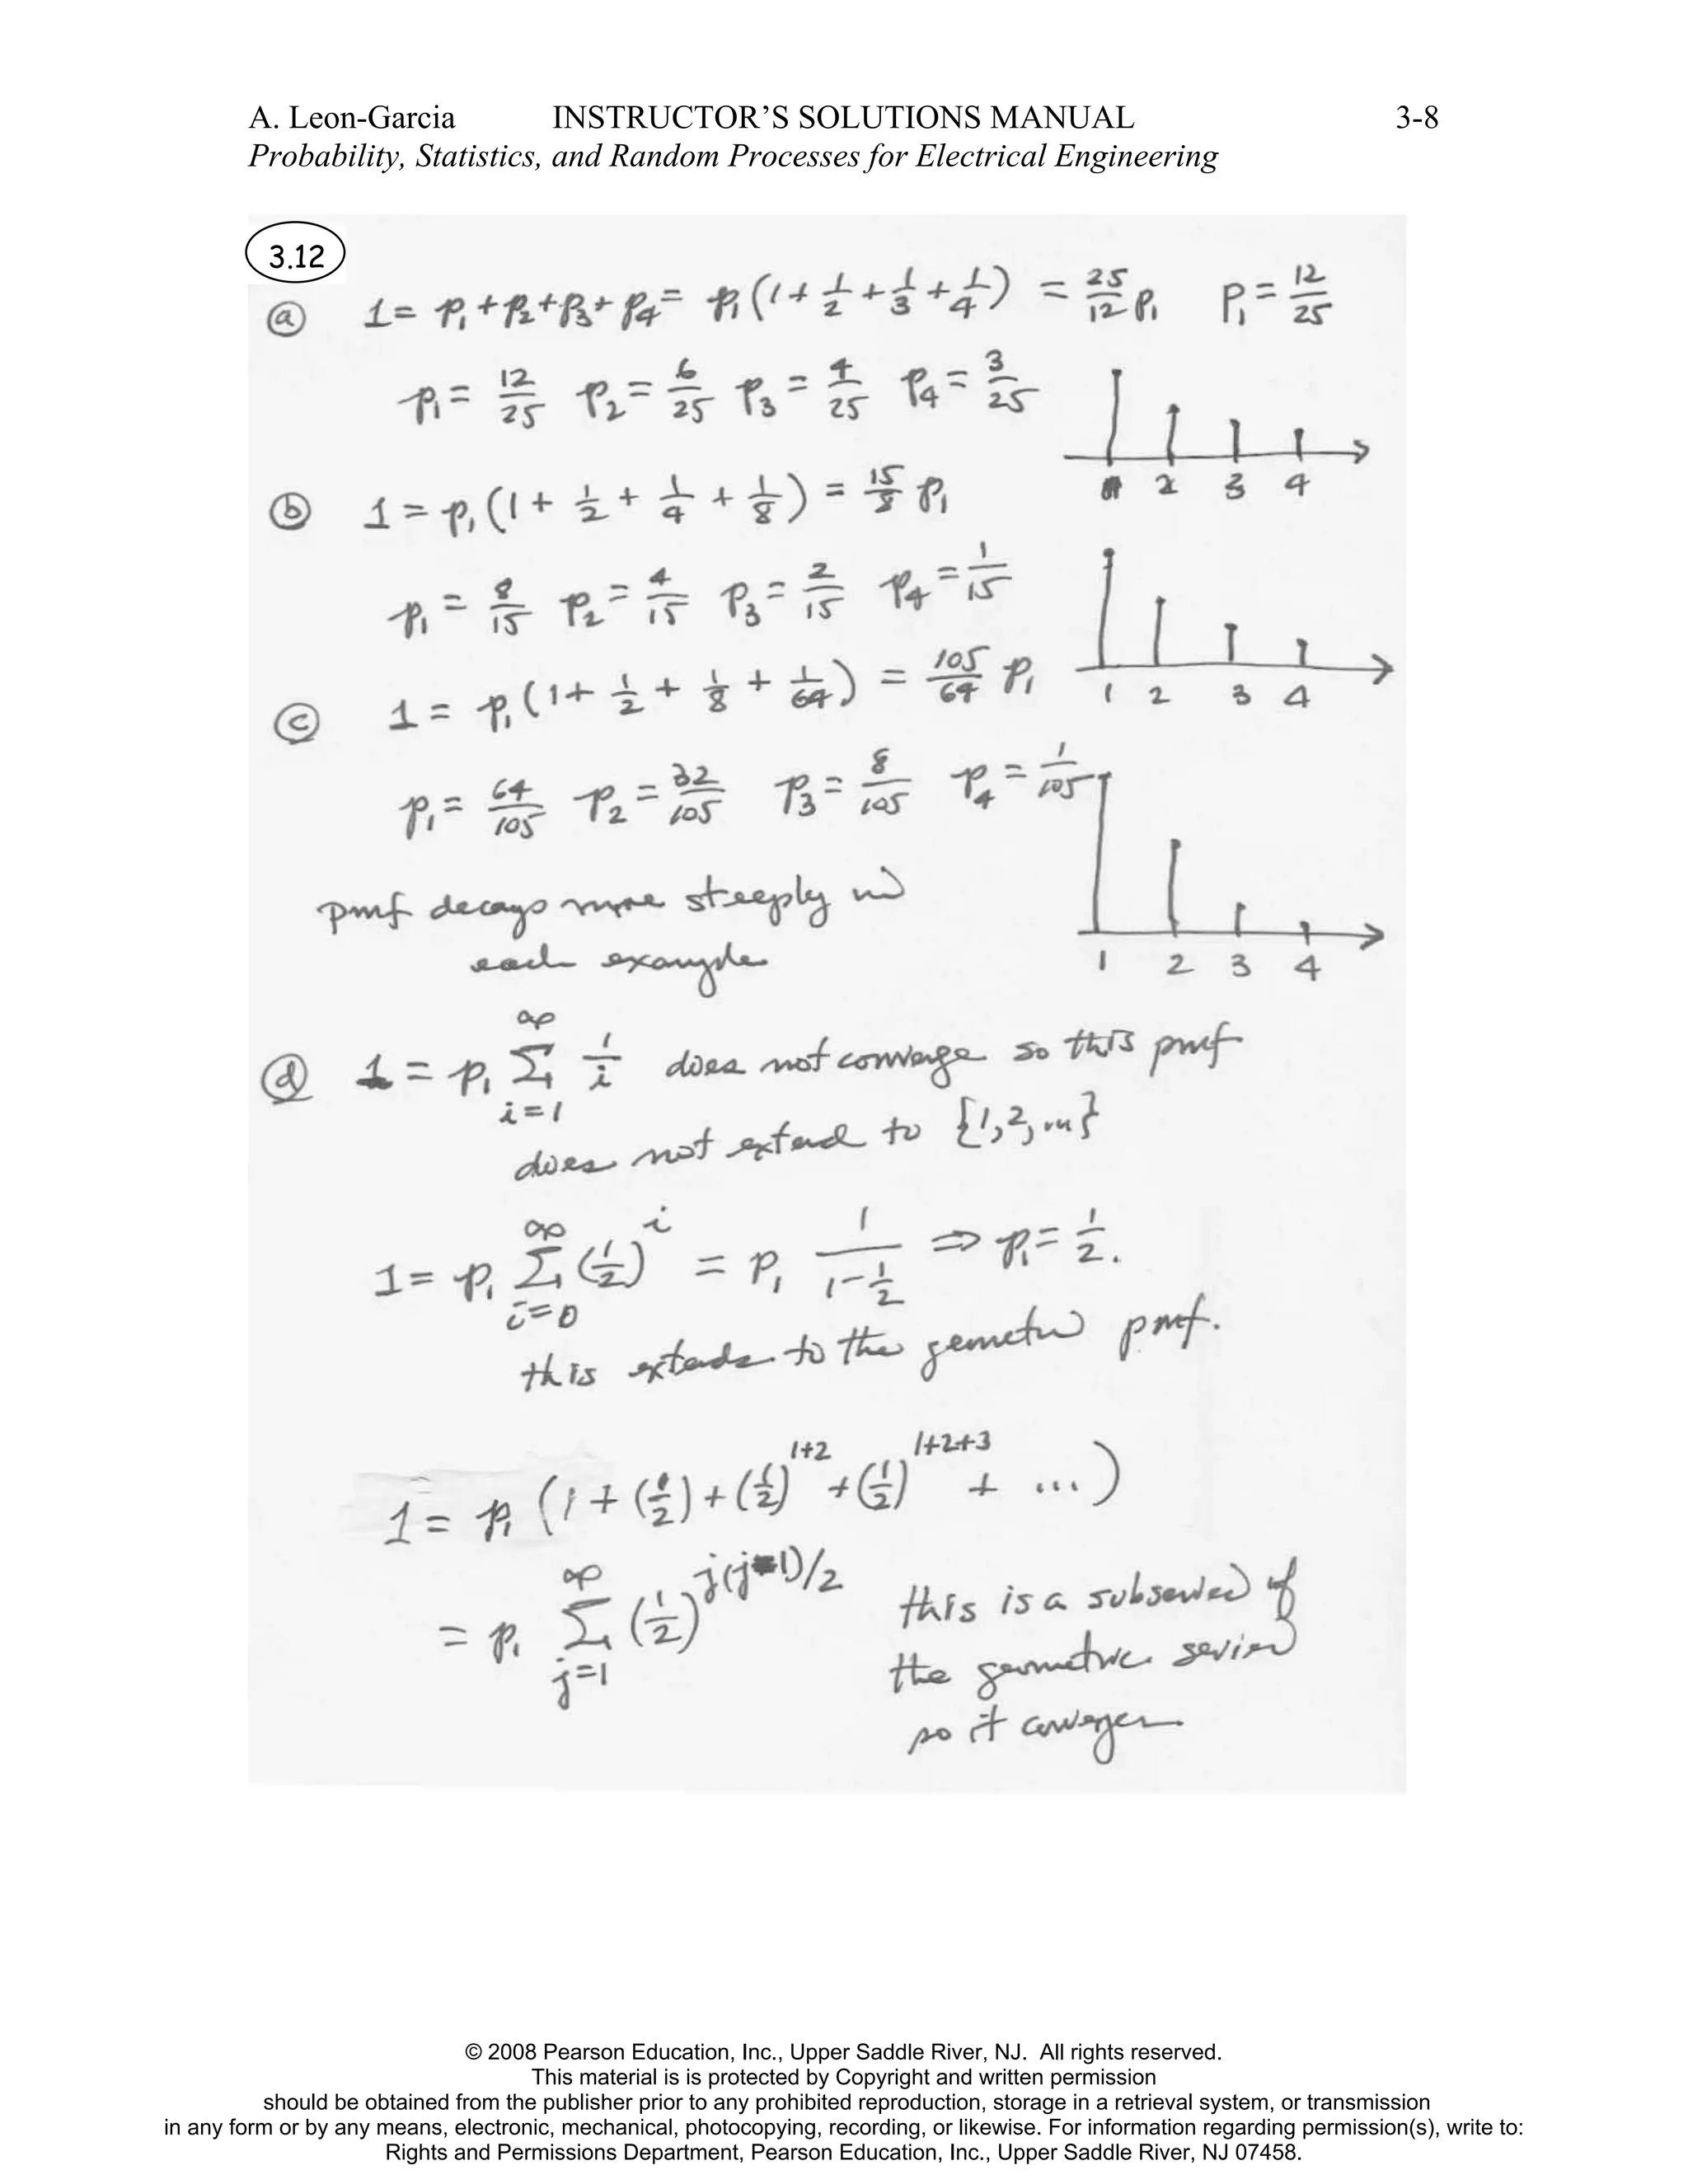 A. Leon-Garcia INSTRUCTOR'S SOLUTIONS MANUAL 3-8
Probability, Statistics, and Random Processes for Electrical Engineering
3.12
ⓐ 1 = p₁ + p₂ + p₃ + p₄ = p₁(1 + 1/2 + 1/3 + 1/4) = 25/12 p₁ p₁ = 12/25
p₁ = 12/25 p₂ = 6/25 p₃ = 4/25 p₄ = 3/25
1 2 3 4
ⓑ 1 = p₁(1 + 1/2 + 1/4 + 1/8) = 15/8 p₁
p₁ = 8/15 p₂ = 4/15 p₃ = 2/15 p₄ = 1/15
1 2 3 4
ⓒ 1 = p₁(1 + 1/2 + 1/8 + 1/64) = 105/64 p₁
p₁ = 64/105 p₂ = 32/105 p₃ = 8/105 p₄ = 1/105
pmf decays more steeply in
each example
1 2 3 4
ⓓ 1 = p₁ ∑_{i=1}^{∞} 1/i does not converge so this pmf
does not extend to {1,2,...}
1 = p₁ ∑_{i=0}^{∞} (1/2)^i = p₁ 1/(1-1/2) ⇒ p₁ = 1/2.
this extends to the geometric pmf.
1 = p₁ (1 + (1/2) + (1/2)^{1+2} + (1/2)^{1+2+3} + ...)
= p₁ ∑_{j=1}^{∞} (1/2)^{j(j-1)/2} this is a subseries of
the geometric series
so it converges
© 2008 Pearson Education, Inc., Upper Saddle River, NJ. All rights reserved.
This material is is protected by Copyright and written permission
should be obtained from the publisher prior to any prohibited reproduction, storage in a retrieval system, or transmission
in any form or by any means, electronic, mechanical, photocopying, recording, or likewise. For information regarding permission(s), write to:
Rights and Permissions Department, Pearson Education, Inc., Upper Saddle River, NJ 07458.